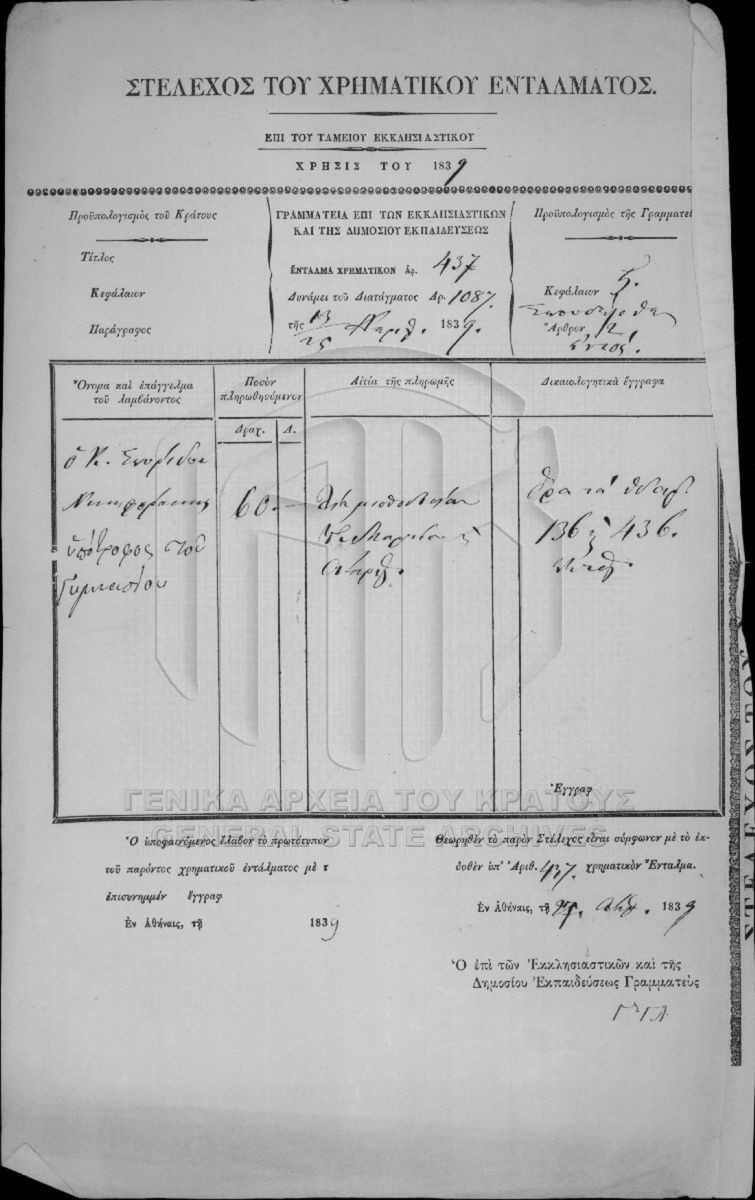 ΣΤΕΛΕΧΟΣ ΤΟΥ ΧΡΗΜΑΤΙΚΟΥ ΕΝΤΑΛΜΑΤΟΣ.
ΕΠΙ ΤΟΥ ΤΑΜΕΙΟΥ ΕΚΚΛΗΣΙΑΣΤΙΚΟΥ
ΧΡΗΣΙΣ ΤΟΥ 1839
Προϋπολογισμὸς τοῦ Κράτους
Τίτλος
Κεφάλαιον
Παράγραφος
ΓΡΑΜΜΑΤΕΙΑ ΕΠΙ ΤΩΝ ΕΚΚΛΗΣΙΑΣΤΙΚΩΝ
ΚΑΙ ΤΗΣ ΔΗΜΟΣΙΟΥ ΕΚΠΑΙΔΕΥΣΕΩΣ
ΕΝΤΑΛΜΑ ΧΡΗΜΑΤΙΚΟΝ ἀρ. 437
Δυνάμει τοῦ Διατάγματος Ἀρ. 1087.
τῆς 13/25 1839.
Προϋπολογισμὸς τῆς Γραμματεί
Κεφάλαιον
Ἄρθρον
Ὄνομα καὶ ἐπάγγελμα
τοῦ λαμβάνοντος
Ποσὸν
πληρωθησόμενον
Δραχ. Λ.
Αἰτία τῆς πληρωμῆς
Δικαιολογητικὰ ἔγγραφα
ὁ Κ.
60.
ὑπότροφος τοῦ
Γυμνασίου
136 436.
Ἔγγραφ
ΓΕΝΙΚΑ ΑΡΧΕΙΑ ΤΟΥ ΚΡΑΤΟΥΣ
GENERAL STATE ARCHIVES
Ὁ ὑποφαινόμενος ἔλαβον τὸ πρωτότυπον
τοῦ παρόντος χρηματικοῦ ἐντάλματος μὲ τ
ἐπισυνημμέν ἔγγραφ
Ἐν Ἀθήναις, τῇ 1839
Θεωρηθὲν τὸ παρὸν Στέλεχος εἶναι σύμφωνον μὲ τὸ ἐκ-
δοθὲν ὑπ' Ἀριθ. 437. χρηματικὸν Ἔνταλμα.
Ἐν Ἀθήναις, τῇ 1839
Ὁ ἐπὶ τῶν Ἐκκλησιαστικῶν καὶ τῆς
Δημοσίου Ἐκπαιδεύσεως Γραμματεὺς
ΣΤΕΛΕΧΟΣ ΤΟΥ